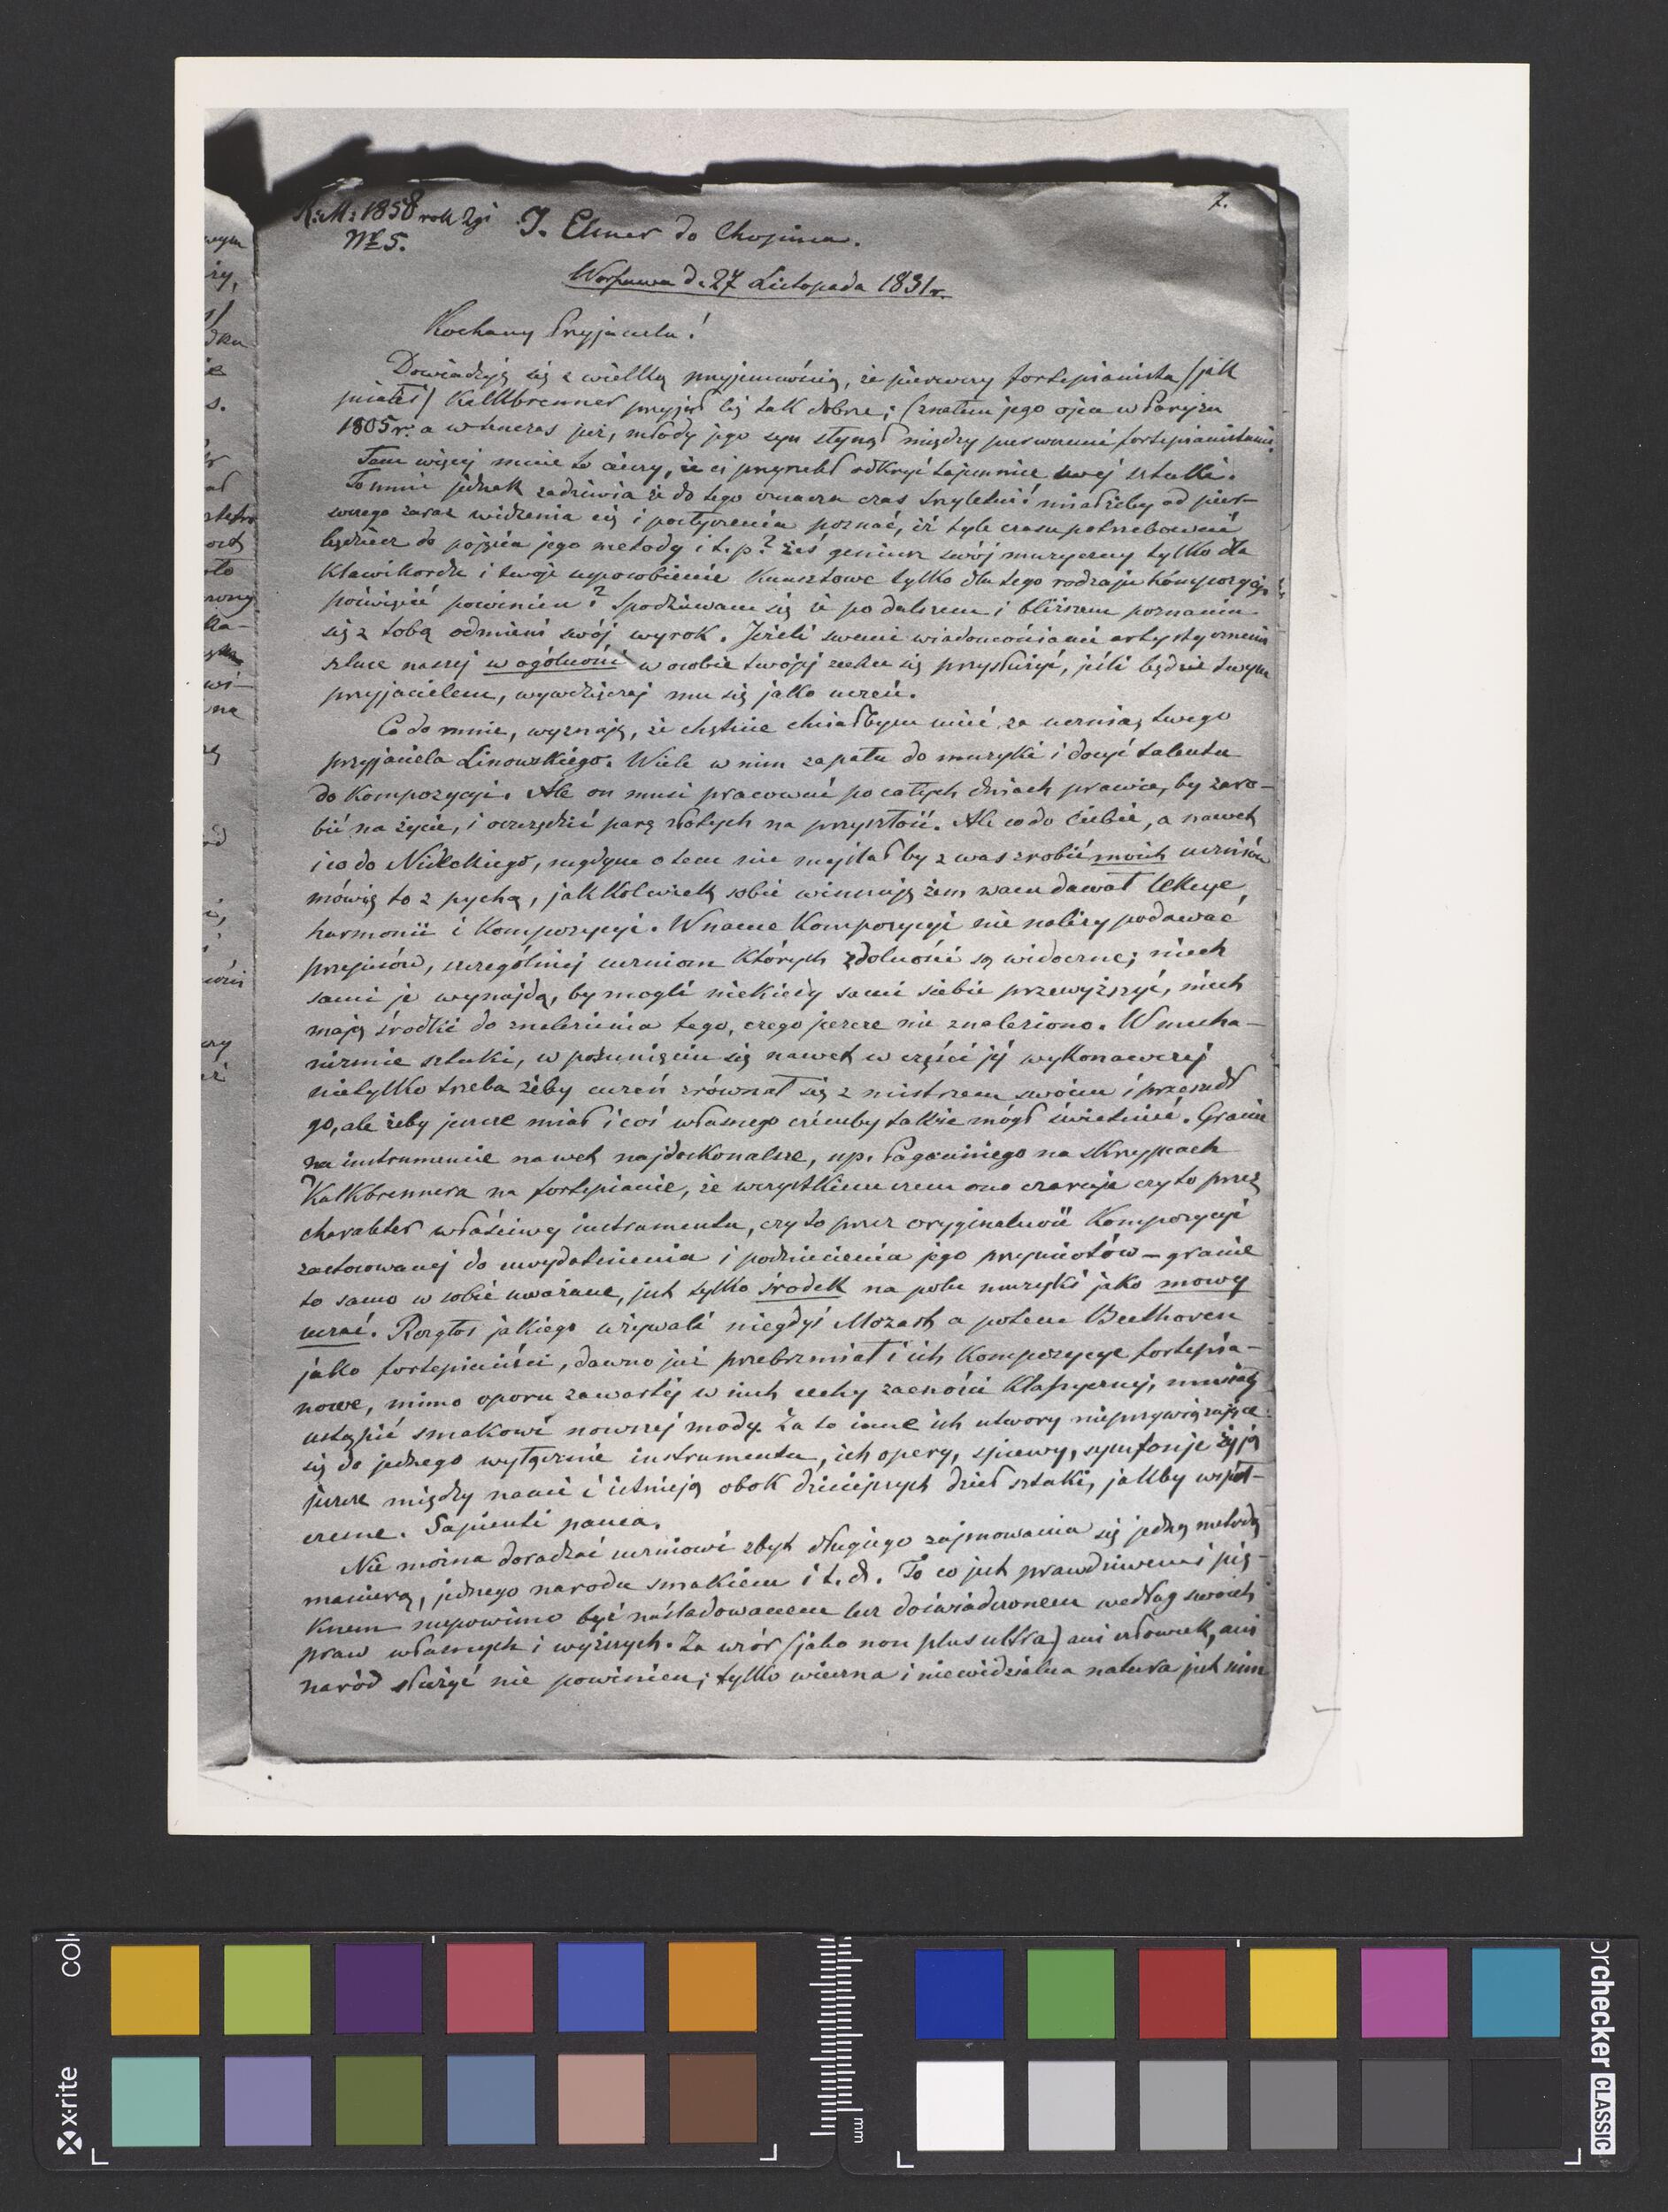 7.
R: M: 1858 rok 2gi J. Elsner do Chopina.
№ 5.
Warszawa d. 27 Listopada 1831r.
Kochany Przyjacielu!
Dowiaduję się z wielką przyjemnością, że pierwszy fortepianista (jak
piszesz) Kalkbrenner przyjął Cię tak dobrze; (znałem jego ojca w Paryżu
1805 r: a wtenczas już, młody jego syn słynął między pierwszemi fortepianistami.
Tem więcej mnie to cieszy, że ci przyrzekł odkryć tajemnice swej sztuki.
To mnie jednak zadziwia że do tego oznacza czas trzyletni! miałżeby od pier-
wszego zaraz widzenia cię i posłyszenia poznać, iż tyle czasu potrzebować
będziesz do pojęcia jego metody i t. p? żeś geniusz swój muzyczny tylko dla
Klawikordu i twoje usposobienie Kunsztowe tylko dla tego rodzaju Kompozycji
poświęcić powinien? Spodziewam się że po dalszem i bliższem poznaniu
się z tobą odmieni swój wyrok. Jeżeli swemi wiadomościami artystycznemi
sztuce naszej w ogólności w osobie twojej zechce się przysłużyć, jeśli będzie twym
przyjacielem, wywdzięczaj mu się jako uczeń.
Co do mnie, wyznaję, że chętnie chciałbym mieć za ucznia, twego
przyjaciela Linowskiego. Wiele w nim zapału do muzyki i dosyć talentu
do Kompozycyi. Ale on musi pracować po całych dniach prawie, by zaro-
bić na życie, i oszczędzić parę złotych na przyszłość. Ale co do Ciebie, a nawet
i co do Nideckiego, nigdym o tem nie myślał by z was zrobić moich uczniów
mówię to z pychą, jakkolwiek sobie winszuję żem wam dawał lekcye,
harmonii i Kompozycyi. W nauce Kompozycyi nie należy podawać
przepisów, szczególniej uczniom których zdolności są widoczne; niech
sami je wynajdą, by mogli niekiedy sami siebie przewyższyć, niech
mają środki do znalezienia tego, czego jeszcze nie znaleziono. W mecha-
nizmie sztuki, w posunięciu się nawet w części jej wykonawczej
nietylko trzeba żeby uczeń zrównał się z mistrzem swoim i przeszedł
go, ale żeby jeszcze miał i coś własnego czemby także mógł świetnieć. Granie
na instrumencie nawet najdoskonalsze, np. Paganiniego na skrzypcach
Kalkbrennera na fortepianie, ze wszystkiem czem ono czaruje czy to przez
charakter właściwy instrumentu, czy to przez oryginalność Kompozycyi
zastosowanej do uwydatnienia i podniecenia jego przymiotów – granie
to samo w sobie uważane, jest tylko środek na polu muzyki jako mowy
uczuć. Rozgłos jakiego używali niegdyś Mozart a potem Beethoven
jako fortepianiści, dawno już przebrzmiał i ich Kompozycye fortepia-
nowe, mimo oporu zawartej w nich cechy zacności Klassycznej, musiały
ustąpić smakowi nowszej mody. Za to inne ich utwory nieprzywiązujące
się do jednego wyłącznie instrumentu, ich opery, śpiewy, symfonje żyją
jeszcze między nami i istnieją obok dzisiejszych dzieł sztuki, jakby współ-
czesne. Sapienti pauca.
Nie można doradzać uczniowi zbyt długiego zajmowania się jedną metodą
manierą, jednego narodu smakiem i t. d. To co jest prawdziwem i pię-
knem niepowinno być naśladowanem lecz doświadczonem według swoich
praw własnych i wyższych. Za wzór (jako non plus ultra) ani człowiek, ani
naród służyć nie powinien; tylko wieczna i niewidzialna natura jest nim
x-rite
mm
colorchecker CLASSIC